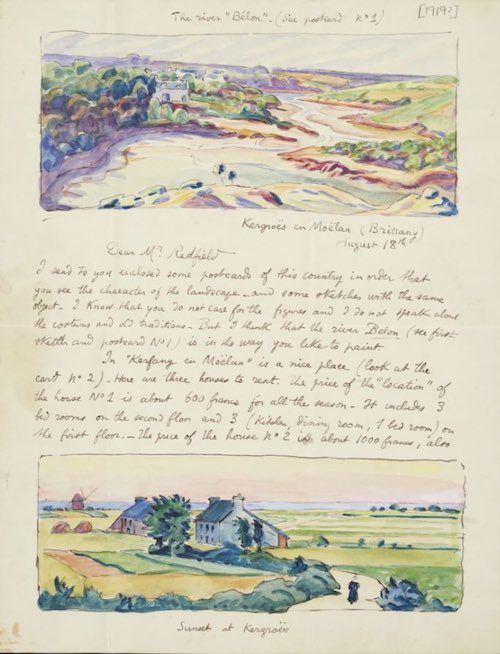 The river "Bélon" - (See postcard n°1)
[1919?]
Kergroës en Moëlan (Brittany)
August 18th
Dear Mr Redfield
I send to you enclosed some postcards of this country in order that
you see the character of the landscape - and some sketches with the same
object - I know that you do not care for the figures and I do not speak about
the costums and old traditions - But I think that the river Belon (see first
sketch and postcard N°1) is in the way you like to paint
In "Kerfany en Moëlan" is a nice place (look at the
card n° 2) - Here are three houses to rent. The price of the "location" of
the house N°1 is about 600 francs for all the season - It includes 3
bed rooms on the second floor and 3 (kitchen, dining room, 1 bed room) on
the first floor. - The price of the house N° 2 is about 1000 francs, also
Sunset at Kergroës